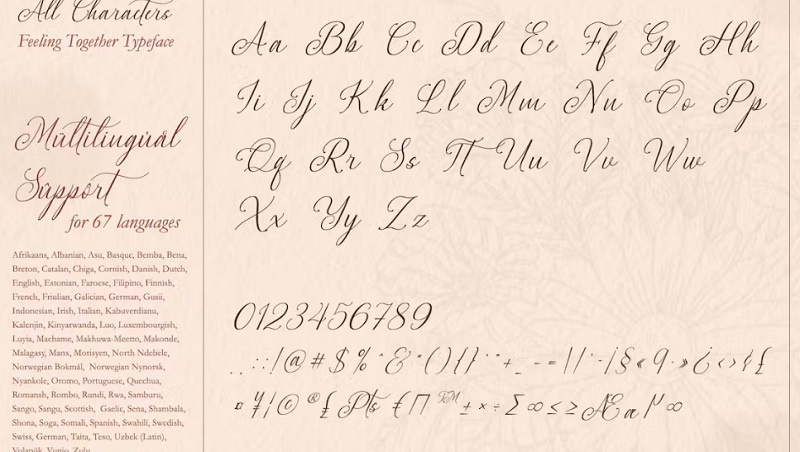 All Characters
Feeling Together Typeface
Multilingual
Support
for 67 languages
Afrikaans, Albanian, Asu, Basque, Bemba, Bena,
Breton, Catalan, Chiga, Cornish, Danish, Dutch,
English, Estonian, Faroese, Filipino, Finnish,
French, Friulian, Galician, German, Gusii,
Indonesian, Irish, Italian, Kabuverdianu,
Kalenjin, Kinyarwanda, Luo, Luxembourgish,
Luyia, Machame, Makhuwa-Meetto, Makonde,
Malagasy, Manx, Morisyen, North Ndebele,
Norwegian Bokmål, Norwegian Nynorsk,
Nyankole, Oromo, Portuguese, Quechua,
Romansh, Rombo, Rundi, Rwa, Samburu,
Sango, Sangu, Scottish, Gaelic, Sena, Shambala,
Shona, Soga, Somali, Spanish, Swahili, Swedish,
Swiss, German, Taita, Teso, Uzbek (Latin),
Volapük, Vunjo, Zulu
Aa Bb Cc Dd Ee Ff Gg Hh
Ii Jj Kk Ll Mm Nn Oo Pp
Qq Rr Ss Tt Uu Vv Ww
Xx Yy Zz
0123456789
. , : ; ! @ # $ % ^ & * ( ) { } " + _ - = | / § « » ¿ ‹ › £
¤ ¥ ¦ © ® £ Pts € Π ™ ± × ÷ Σ ∞ ≤ ≥ Æ a µ ∞